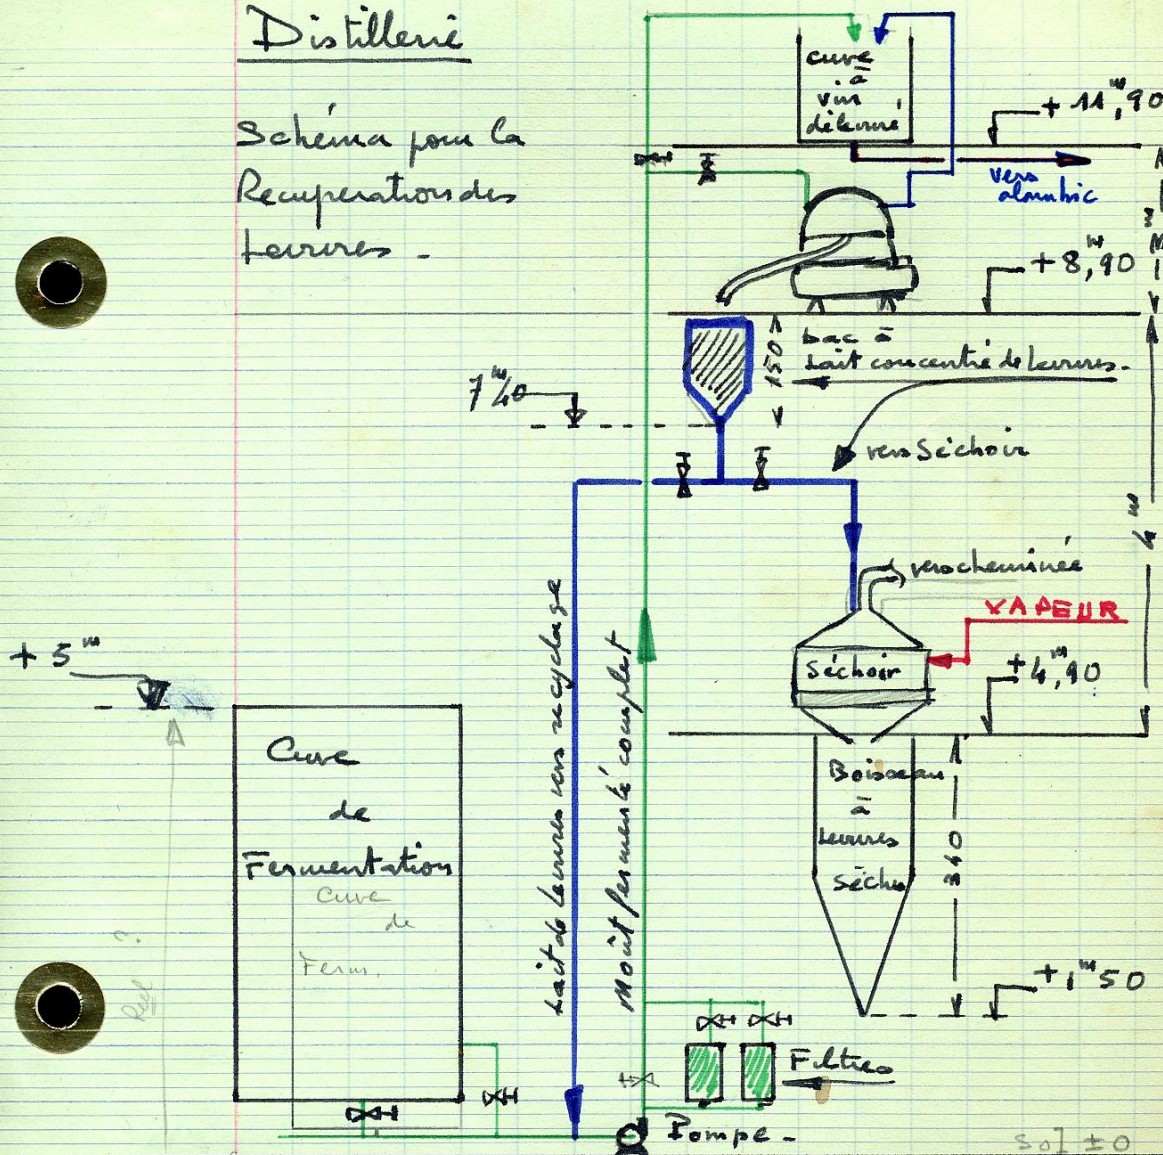 Distillerie
Schéma pour la
Recuperation des
Levures -
cuve
à
vin
délevuré
+ 11m,90
vers
alambic
+ 8,m90
bac à
Lait concentré de Levures -
150
7m40
vers Séchoir
4m
vers cheminée
VAPEUR
Séchoir
+ 4,m90
+ 5m
Cuve
de
Fermentation
Cuve
de
Ferm.
Réel ?
Lait de Levures vers recyclage
Moût fermenté complet
Boisseau
à
Levures
Sèches
340
+ 1m50
Filtres
Pompe -
Sol ± 0